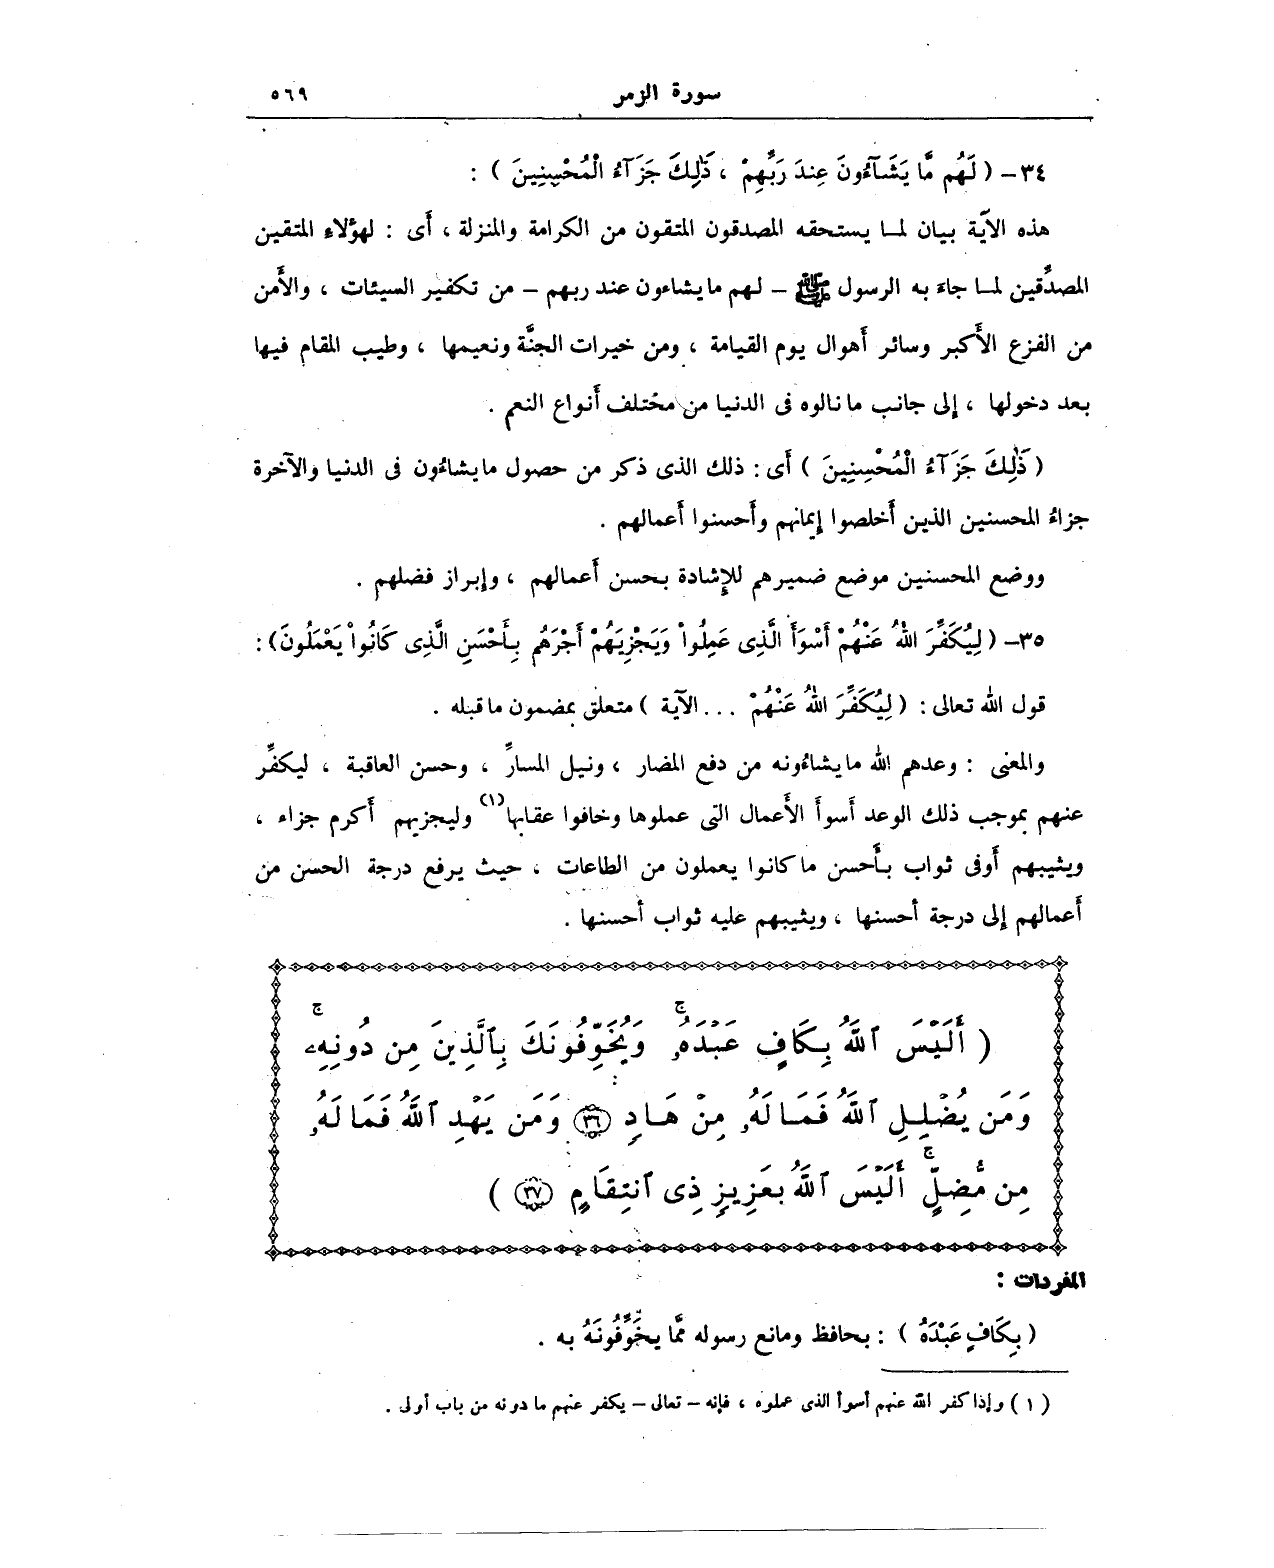 سورة الزمر ٥٦٩
٣٤- ( لَهُم مَّا يَشَآءُونَ عِندَ رَبِّهِمْ ، ذَٰلِكَ جَزَآءُ الْمُحْسِنِينَ ) :
هذه الآية بيان لمـا يستحقه المصدقون المتقون من الكرامة والمنزلة ، أى : لهؤلاء المتقين
المصدِّقين لمـا جاء به الرسول ﷺ - لهم ما يشاءون عند ربهم - من تكفير السيئات ، والأَمن
من الفزع الأَكبر وسائر أَهوال يوم القيامة ، ومن خيرات الجنَّة ونعيمها ، وطيب المقام فيها
بعد دخولها ، إلى جانب ما نالوه فى الدنيا من مختلف أَنواع النعم .
( ذَٰلِكَ جَزَآءُ الْمُحْسِنِينَ ) أَى : ذلك الذى ذكر من حصول ما يشاءُون فى الدنيا والآخرة
جزاءُ المحسنين الذين أَخلصوا إيمانهم وأَحسنوا أَعمالهم .
ووضع المحسنين موضع ضميرهم للإشادة بحسن أَعمالهم ، وإبراز فضلهم .
٣٥- ( لِيُكَفِّرَ اللهُ عَنْهُمْ أَسْوَأَ الَّذِى عَمِلُواْ وَيَجْزِيَهُمْ أَجْرَهُم بِأَحْسَنِ الَّذِى كَانُواْ يَعْمَلُونَ) :
قول الله تعالى : ( لِيُكَفِّرَ اللهُ عَنْهُمْ ... الآية ) متعلق بمضمون ما قبله .
والمعنى : وعدهم الله ما يشاءُونه من دفع المضار ، ونيل المسارِّ ، وحسن العاقبة ، ليكفِّر
عنهم بموجب ذلك الوعد أَسوأَ الأَعمال التى عملوها وخافوا عقابها(١) وليجزيهم أَكرم جزاء ،
ويثيبهم أَوفى ثواب بأَحسن ما كانوا يعملون من الطاعات ، حيث يرفع درجة الحسن من
أَعمالهم إلى درجة أحسنها ، ويثيبهم عليه ثواب أَحسنها .
( أَلَيْسَ ٱللَّهُ بِكَافٍ عَبْدَهُۥ ۚ وَيُخَوِّفُونَكَ بِٱلَّذِينَ مِن دُونِهِۦ ۚ
وَمَن يُضْلِلِ ٱللَّهُ فَمَا لَهُۥ مِنْ هَادٍ ٣٦ وَمَن يَهْدِ ٱللَّهُ فَمَا لَهُۥ
مِن مُّضِلٍّ ۚ أَلَيْسَ ٱللَّهُ بِعَزِيزٍ ذِى ٱنتِقَامٍ ٣٧ )
المفردات :
( بِكَافٍ عَبْدَهُ ) : بحافظ ومانع رسوله ممَّا يخَوِّفُونَهُ به .
( ١ ) وإذا كفر الله عنهم أسوأ الذى عملوه ، فإنه - تعالى - يكفر عنهم ما دونه من باب أولى .